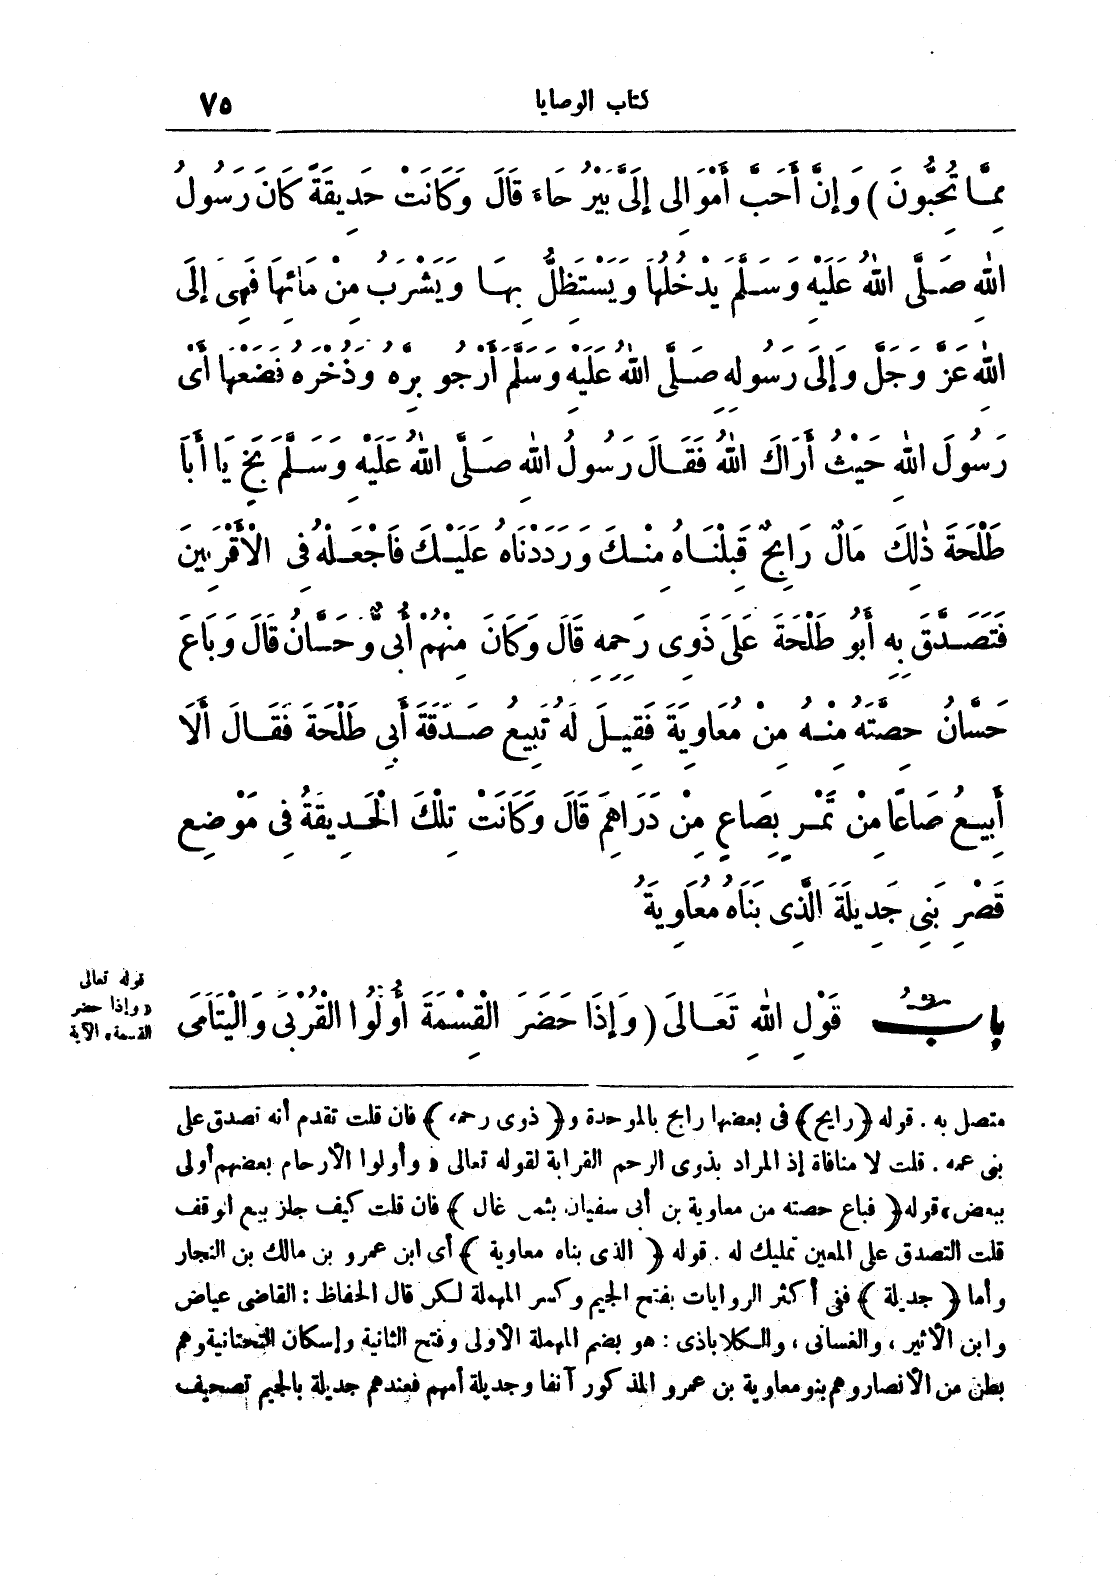 كتاب الوصايا ٧٥
مِمَّا تُحِبُّونَ ) وَإِنَّ أَحَبَّ أَمْوَالِى إِلَىَّ بَيْرُ حَاءَ قَالَ وَكَانَتْ حَدِيقَةً كَانَ رَسُولُ
اللهِ صَلَّى اللهُ عَلَيْهِ وَسَلَّمَ يَدْخُلُهَا وَيَسْتَظِلُّ بِهَا وَيَشْرَبُ مِنْ مَائِهَا فَهِىَ إِلَى
اللهِ عَزَّ وَجَلَّ وَإِلَى رَسُولِهِ صَلَّى اللهُ عَلَيْهِ وَسَلَّمَ أَرْجُو بِرَّهُ وَذُخْرَهُ فَضَعْهَا أَىْ
رَسُولَ اللهِ حَيْثُ أَرَاكَ اللهُ فَقَالَ رَسُولُ اللهِ صَلَّى اللهُ عَلَيْهِ وَسَلَّمَ بَخٍ يَا أَبَا
طَلْحَةَ ذٰلِكَ مَالٌ رَابِحٌ قَبِلْنَاهُ مِنْكَ وَرَدَدْنَاهُ عَلَيْكَ فَاجْعَلْهُ فِى الْأَقْرَبِينَ
فَتَصَدَّقَ بِهِ أَبُو طَلْحَةَ عَلَى ذَوِى رَحِمِهِ قَالَ وَكَانَ مِنْهُمْ أُبَىٌّ وَحَسَّانُ قَالَ وَبَاعَ
حَسَّانُ حِصَّتَهُ مِنْهُ مِنْ مُعَاوِيَةَ فَقِيلَ لَهُ تَبِيعُ صَدَقَةَ أَبِى طَلْحَةَ فَقَالَ أَلَا
أَبِيعُ صَاعًا مِنْ تَمْرٍ بِصَاعٍ مِنْ دَرَاهِمَ قَالَ وَكَانَتْ تِلْكَ الْحَدِيقَةُ فِى مَوْضِعِ
قَصْرِ بَنِى جَدِيلَةَ الَّذِى بَنَاهُ مُعَاوِيَةُ
قوله تعالى
« وإذا حضر
القسمة» الآية
بابُ قَوْلِ اللهِ تَعَالَى ( وَإِذَا حَضَرَ الْقِسْمَةَ أُولُوا الْقُرْبَى وَالْيَتَامَى
متصل به . قوله ﴿رابح﴾ فى بعضها رابح بالموحدة و﴿ ذوى رحمه ﴾ فان قلت تقدم أنه تصدق على
بنى عمه . قلت لا منافاة إذ المراد بذوى الرحم القرابة لقوله تعالى « وأولوا الأرحام بعضهم أولى
ببعض» قوله ﴿ فباع حصته من معاوية بن أبى سفيان بثمن غال ﴾ فان قلت كيف جاز بيع الوقف
قلت التصدق على المعين تمليك له . قوله ﴿ الذى بناه معاوية ﴾ أى ابن عمرو بن مالك بن النجار
وأما ﴿ جديلة ﴾ ففى أكثر الروايات بفتح الجيم وكسر المهملة لكن قال الحفاظ : القاضى عياض
وابن الأثير ، والغسانى ، والكلاباذى : هو بضم المهملة الأولى وفتح الثانية وإسكان التحتانية وهم
بطن من الأنصار وهم بنو معاوية بن عمرو المذكور آنفا وجديلة أمهم فعندهم جديلة بالجيم تصحيف